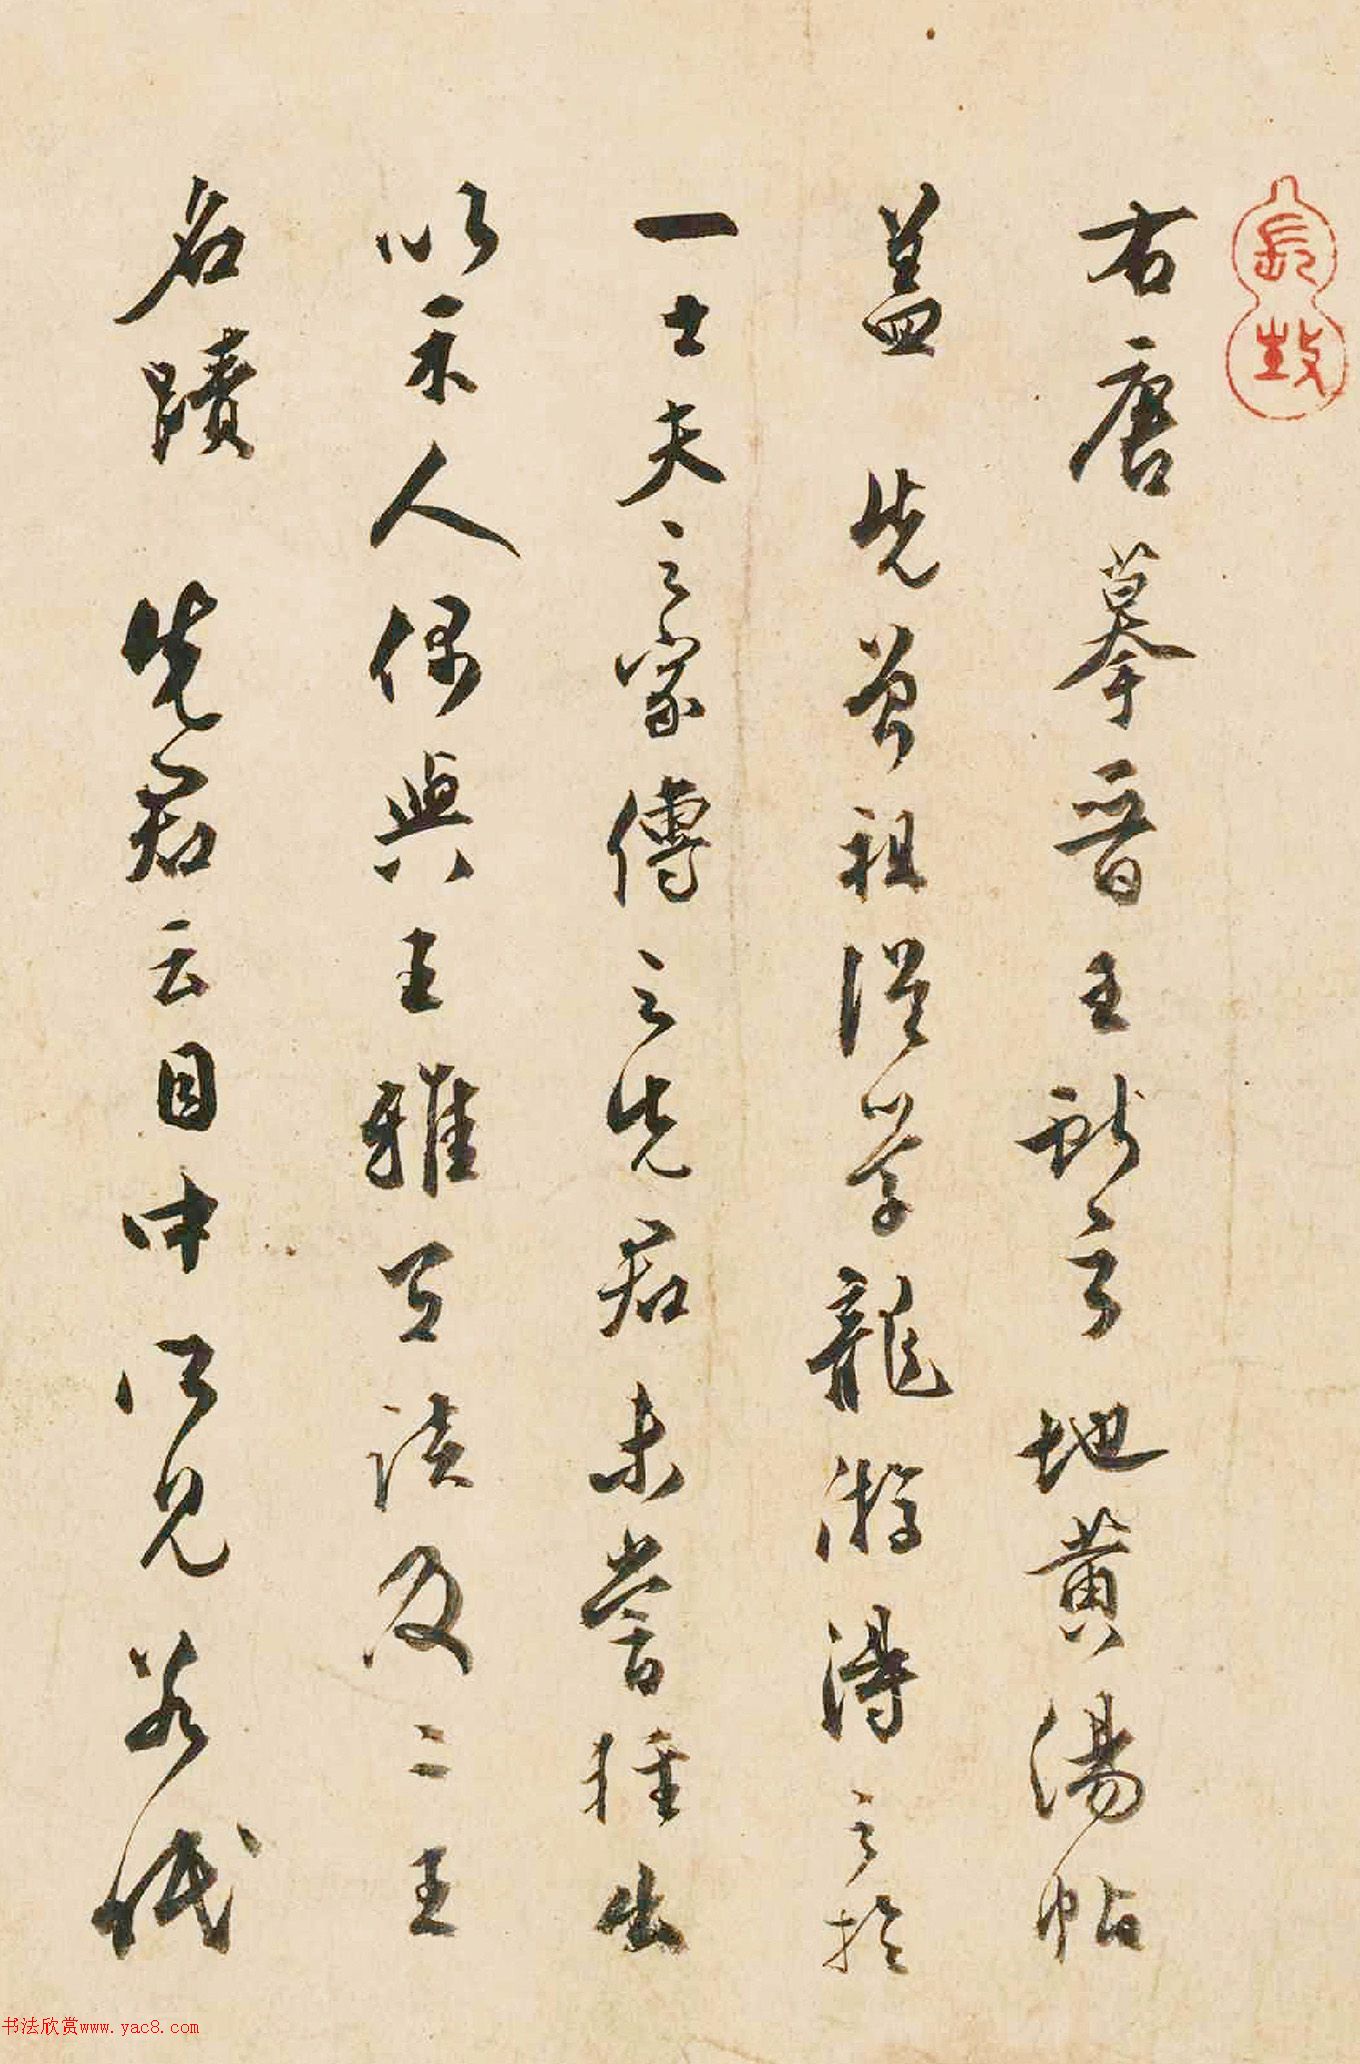 右唐摹晉王獻之地黃湯帖
蓋先曾祖從學龍游得之於
一士夫之家傳之先君未嘗輕出
以示人偶與王雅宜談及二王
名蹟先君云目中所見若
书法欣赏www.yac8.com